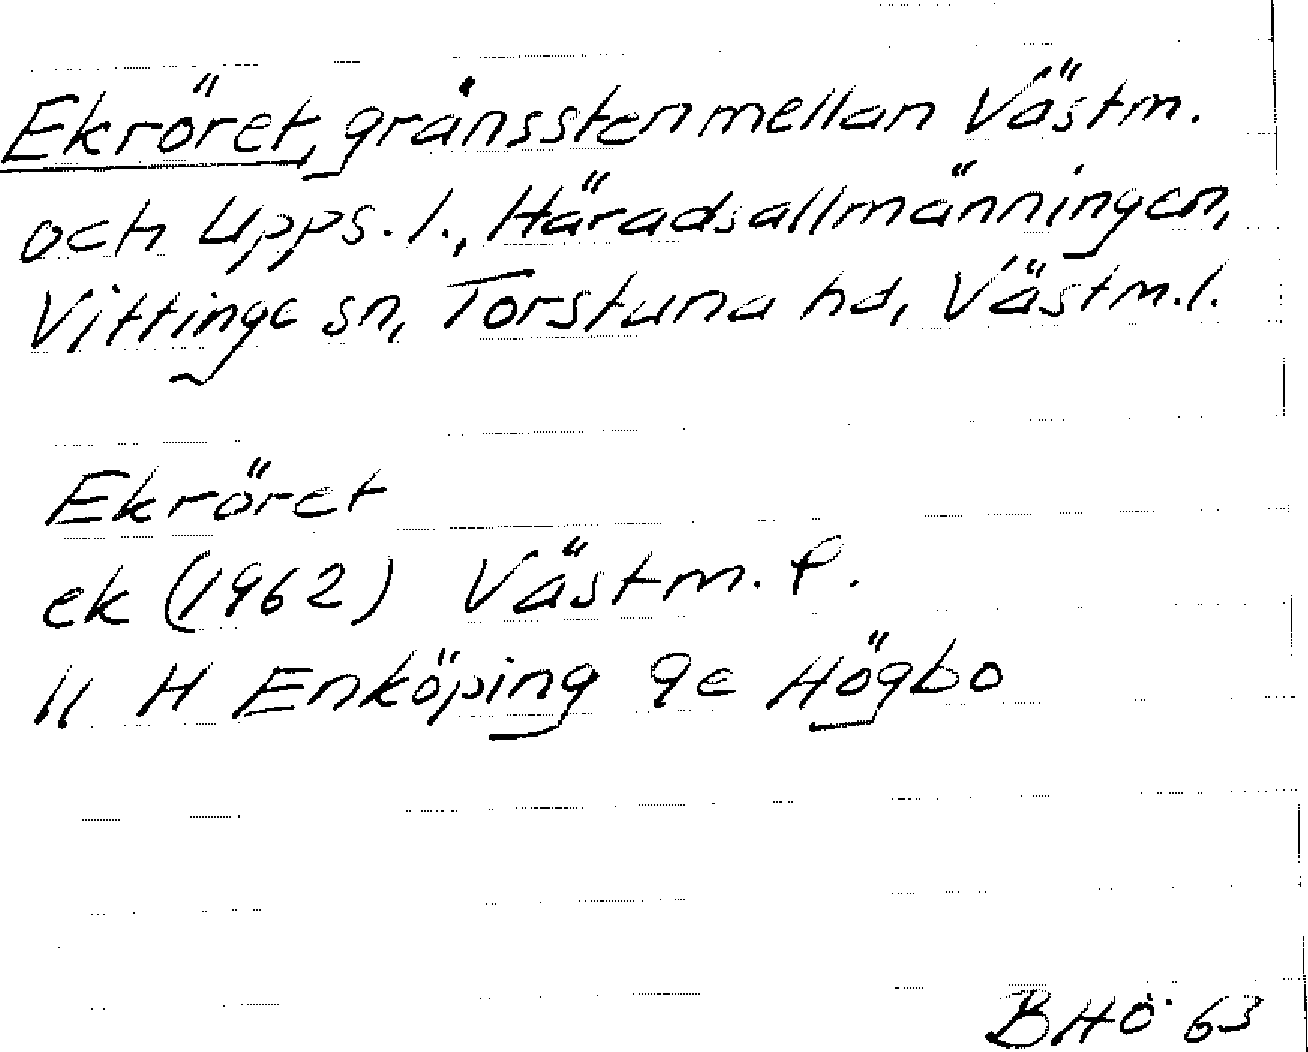 Ekröret, gränssten mellan Västm.
och Upps. l., Häradsallmänningen,
Vittinge sn, Torstuna hd, Västm. l.
Ekröret
ek (1962) Västm. f.
11 H Enköping 9e Högbo
BHÖ 63